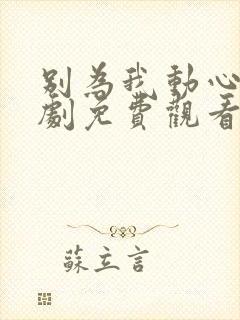 別為我動心
劇免費觀看
蘇立言